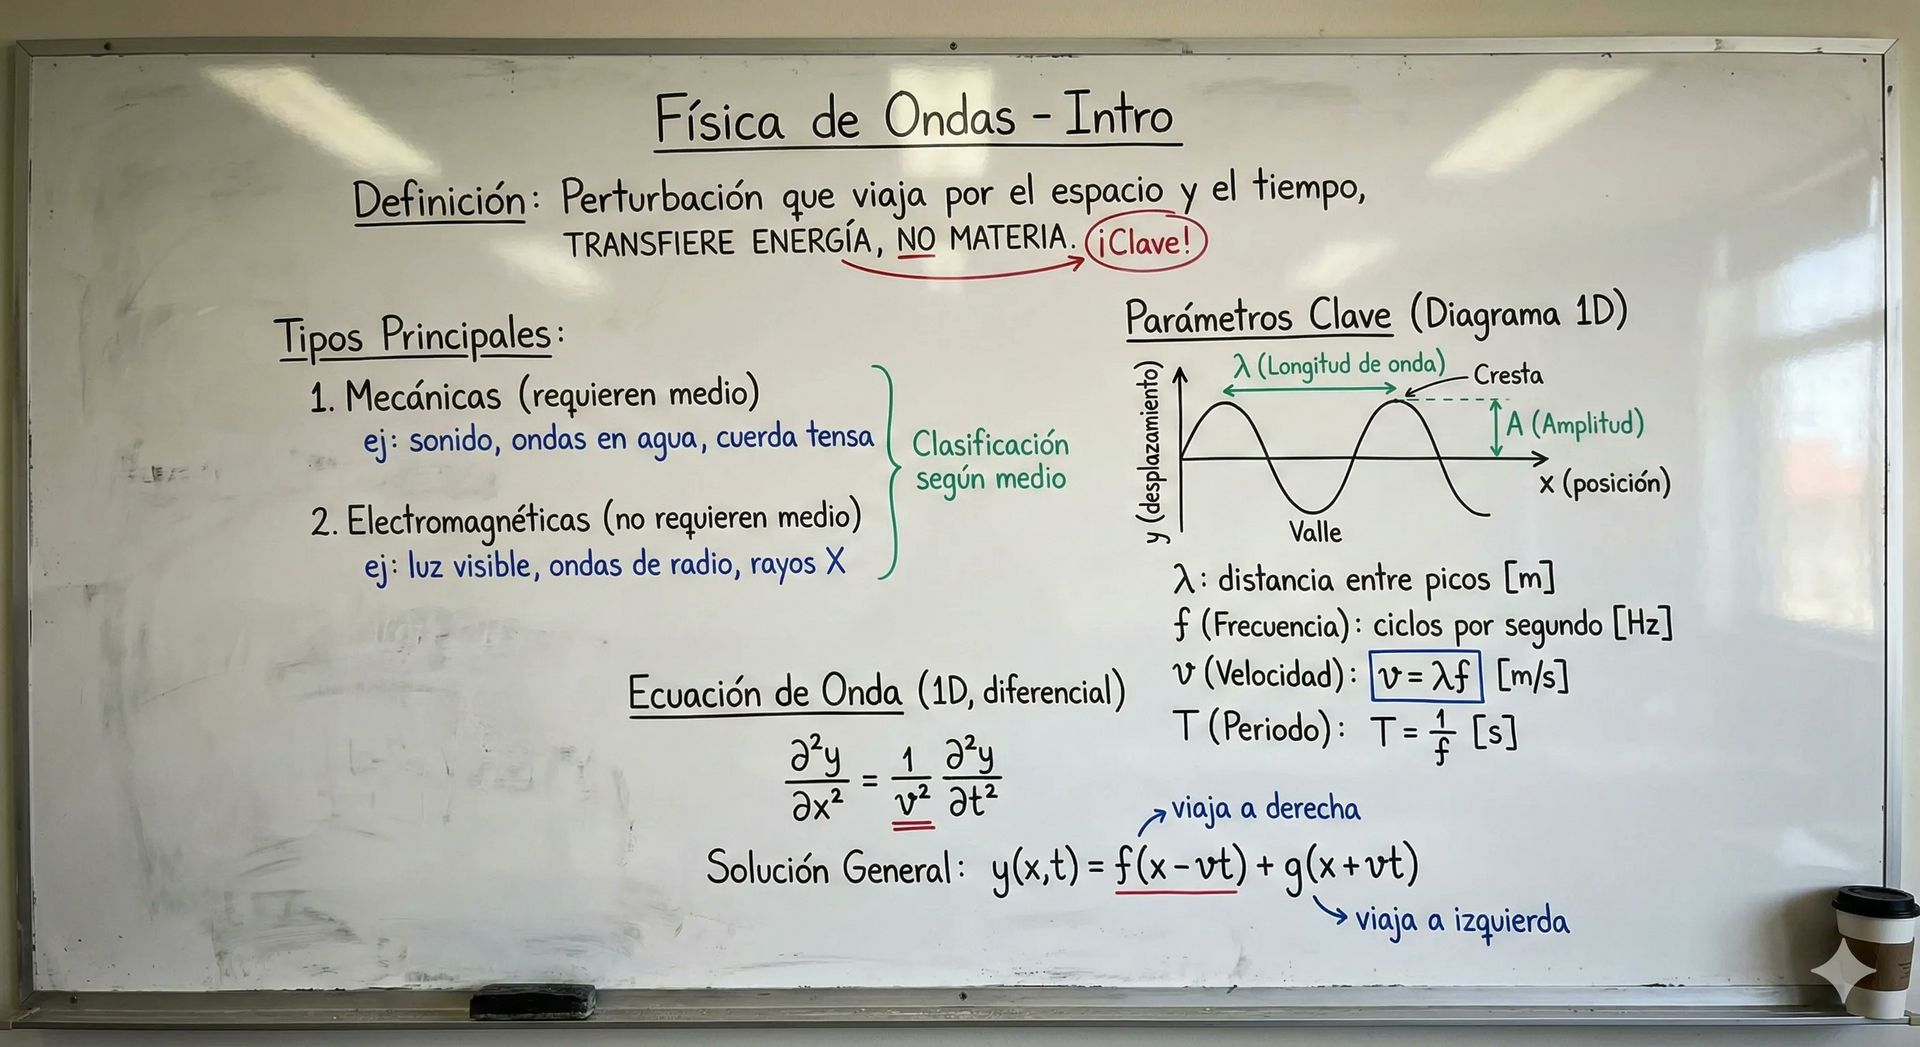 Física de Ondas - Intro
Definición: Perturbación que viaja por el espacio y el tiempo,
TRANSFIERE ENERGÍA, NO MATERIA. ¡Clave!
Tipos Principales:
1. Mecánicas (requieren medio)
ej: sonido, ondas en agua, cuerda tensa
2. Electromagnéticas (no requieren medio)
ej: luz visible, ondas de radio, rayos X
Clasificación
según medio
Parámetros Clave (Diagrama 1D)
λ (Longitud de onda)
Cresta
A (Amplitud)
y (desplazamiento)
x (posición)
Valle
λ: distancia entre picos [m]
f (Frecuencia): ciclos por segundo [Hz]
v (Velocidad): v = λf [m/s]
T (Periodo): T = 1/f [s]
Ecuación de Onda (1D, diferencial)
∂²y/∂x² = 1/v² ∂²y/∂t²
viaja a derecha
Solución General: y(x,t) = f(x-vt) + g(x+vt)
viaja a izquierda